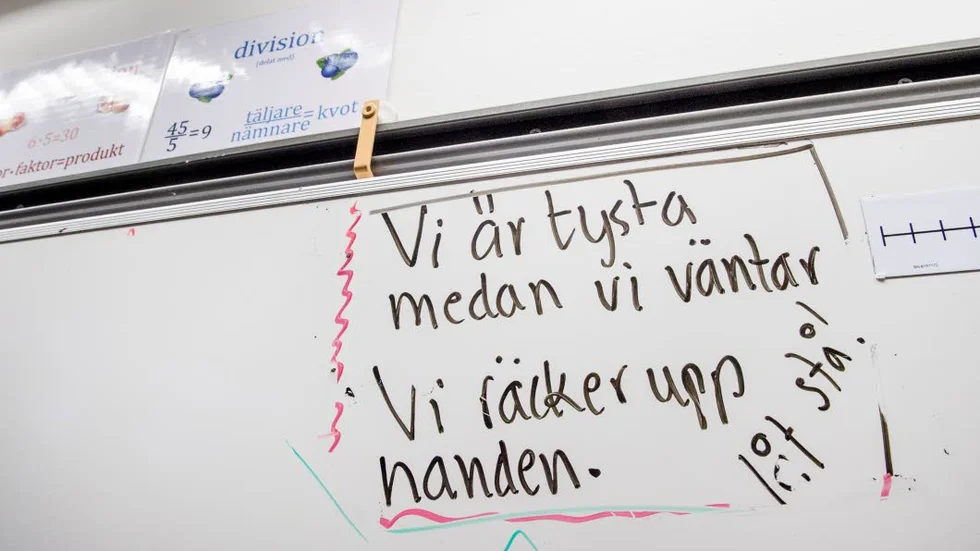 6·5=30
faktor=produkt
division
(delat med)
45
5 =9
täljare
nämnare =kvot
Vi är tysta
medan vi väntar
Vi räcker upp
handen.
låt stå!